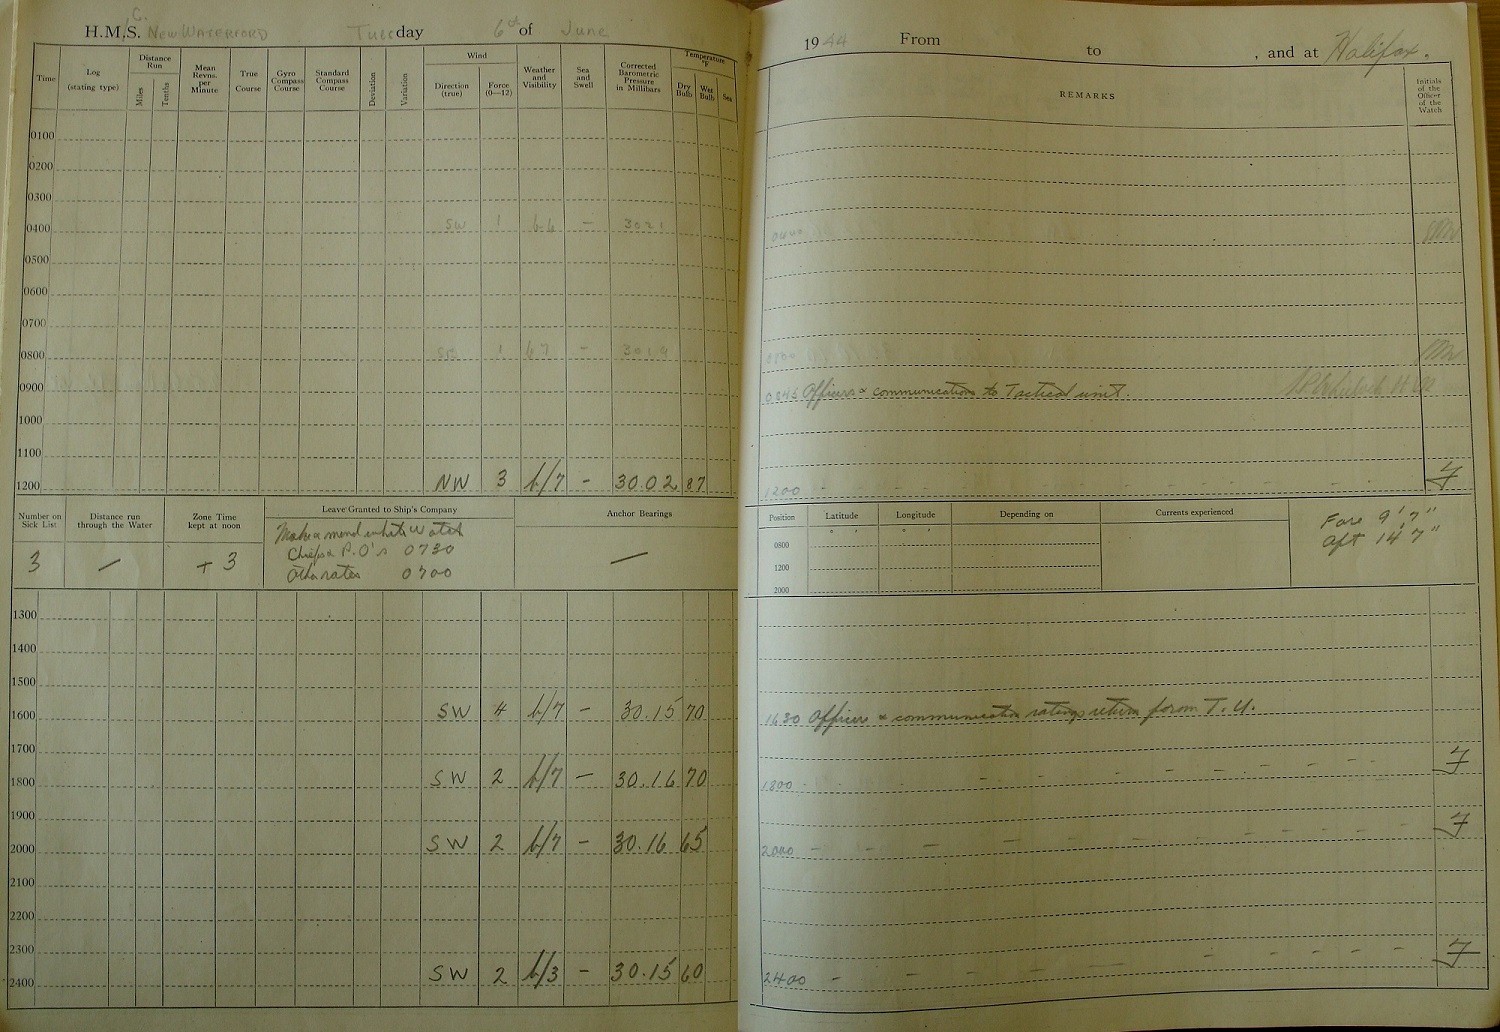 H.M.C.S. NEW WATERFORD Tuesday 6th of June
1944 From to , and at Halifax.
Time
Log
(stating type)
Distance
Run
Miles
Tenths
Mean
Revns.
per
Minute
True
Course
Gyro
Compass
Course
Standard
Compass
Course
Deviation
Variation
Wind
Direction
(true)
Force
(0—12)
Weather
and
Visibility
Sea
and
Swell
Corrected
Barometric
Pressure
in Millibars
Temperature
°F
Dry
Bulb
Wet
Bulb
Sea
REMARKS
Initials
of the
Officer
of the
Watch
0100
0200
0300
0400 SW 1 – 3021
0500
0600
0700
0800 1 b7 – 3019
0900 0845 Officers & communications to Tactical unit.
1000
1100
1200 NW 3 b/7 – 30.02 87 1200 – – – –
Number on
Sick List
3
Distance run
through the Water
–
Zone Time
kept at noon
+ 3
Leave Granted to Ship's Company
Make & mend white watch
Chiefs & P.O's 0730
Other rates 0700
Anchor Bearings
–
Position Latitude Longitude Depending on Currents experienced
0800
1200
2000
Fore 9' 7"
Aft 14' 7"
1300
1400
1500
1600 SW 4 b/7 – 30.15 70 1630 Officers & communication ratings return from T.U.
1700
1800 SW 2 b/7 – 30.16 70 1800 – – – –
1900
2000 SW 2 b/7 – 30.16 65 2000 – – – –
2100
2200
2300
2400 SW 2 b/3 – 30.15 60 2400 – – – –